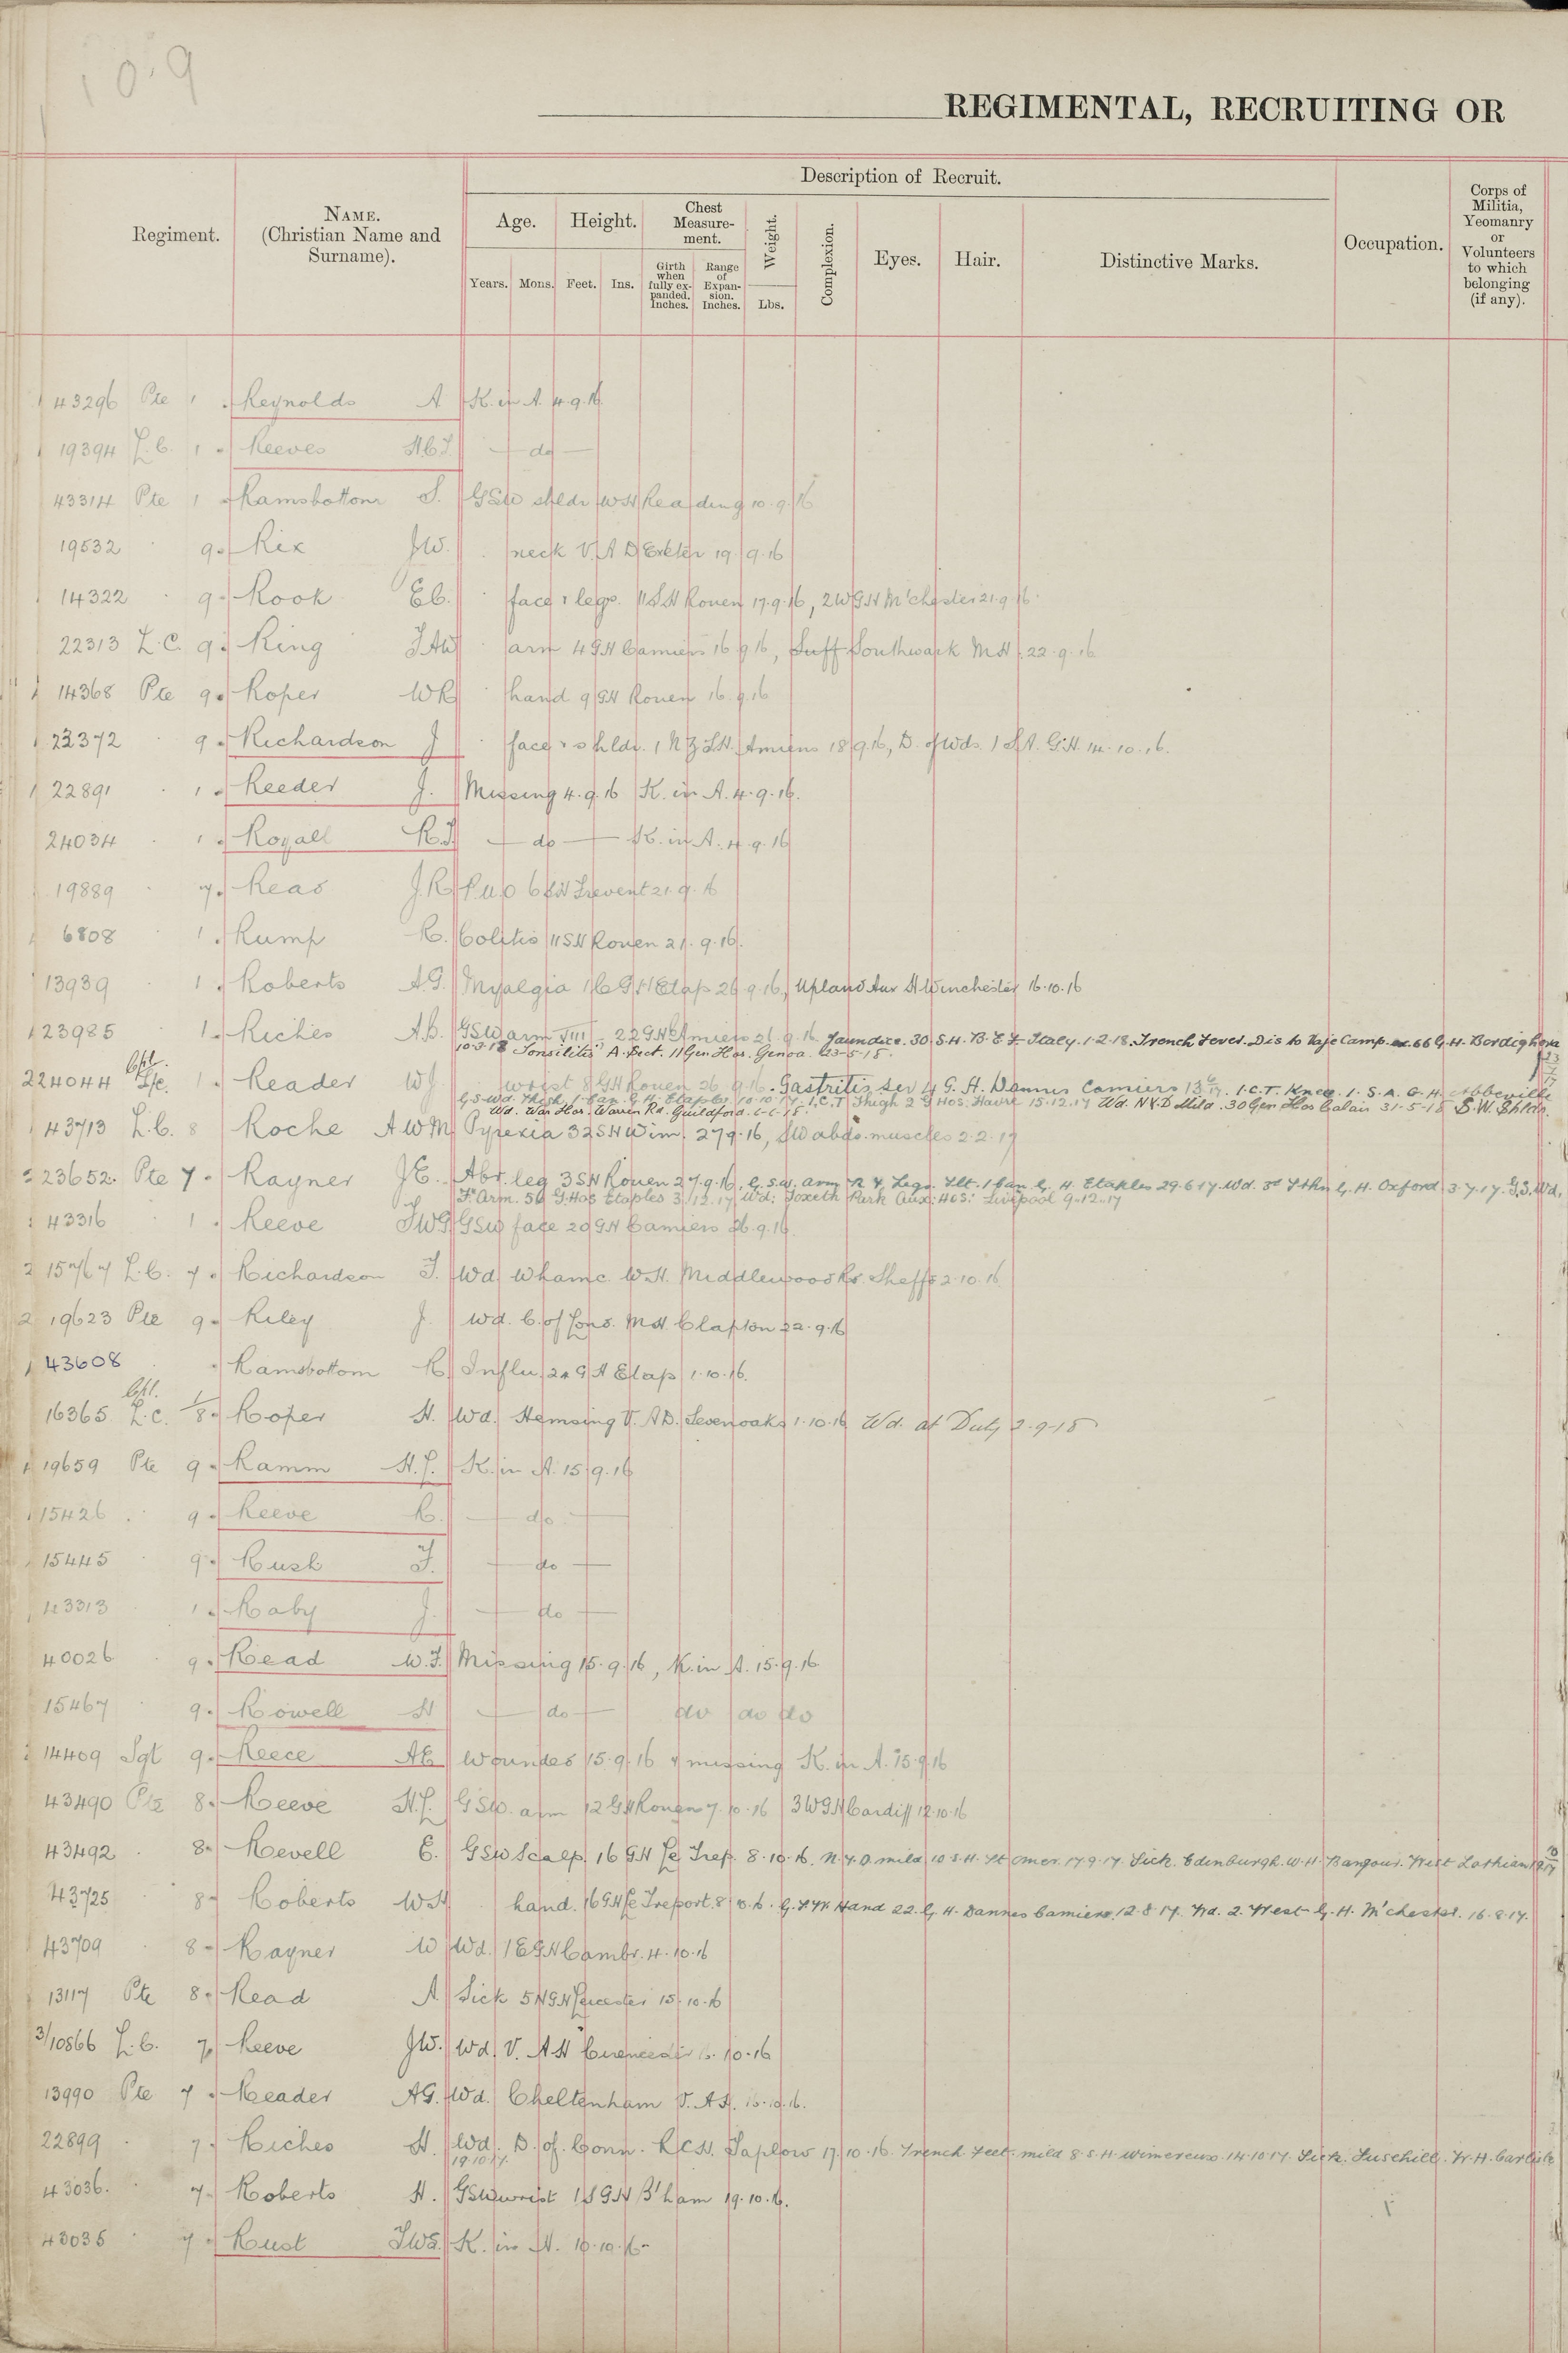 109
REGIMENTAL, RECRUITING OR
Description of Recruit.
Regiment.
NAME.
(Christian Name and
Surname).
Age.
Height.
Chest
Measure-
ment.
Weight.
Complexion.
Eyes.
Hair.
Distinctive Marks.
Occupation.
Corps of
Militia,
Yeomanry
or
Volunteers
to which
belonging
(if any).
Years.
Mons.
Feet.
Ins.
Girth
when
fully ex-
panded.
Inches.
Range
of
Expan-
sion.
Inches.
Lbs.
43296 Pte 1 Reynolds A K. in A. 4.9.16
19394 L.C. 1 Reeves do
43314 Pte 1 Ramsbottom S. GSW shldr WH Reading 10.9.16
19532 9 Rix JW. neck V.A.D Exeter 19.9.16
14322 9 Rook EC. face & legs. 11 SH Rouen 17.9.16, 2WGH M'chester 21.9.16
22313 L.C. 9 Ring arm 4 GH Camiers 16.9.16, Suff Southwark MH 22.9.16
14368 Pte 9 Roper WR hand 9 GH Rouen 16.9.16
22372 9 Richardson J face & shldr. 1 NZ SH. Amiens 18.9.16, D. of Wds. 1 SA. G.H. 14.10.16.
22891 1 Reeder J. Missing 4.9.16 K. in A. 4.9.16.
24034 1 Royall do K. in A. 4.9.16
19889 7 Reas J.R P.U.O 6 SH Frevent 21.9.16
6808 1 Rump R. Colitis 11 SH Rouen 21.9.16.
13939 1 Roberts A.G. Myalgia 16 GH Etap 26.9.16, Upland Aux H Winchester 16.10.16
23985 1 Riches GSW arm 22 GH Camiers 21.9.16 Jaundice. 30 S.H. B.E.F. Italy. 1.2.18. Trench Fever. Dis to Camp. ex. 66 G.H. Bordighera
10.3.18 Tonsilitis A. Fect. 11 Gen Hos. Genoa. 23-5-18.
224044 Cpl. L/c. 1 Reader WJ wrist 8 GH Rouen 26.9.16. Gastritis sev 4 G.H. Dannes Camiers I.C.T. Knee. 1. S.A. G.H. Abbeville
G.S.Wd. Thigh 1 Can. G.H. Etaples 10.10.17. I.C.T Thigh 2 G Hos. Havre 15.12.17 Wd. N.Y.D Mild. 30 Gen Hos Calais 31-5-18 S.W. Shldr.
Wd. War Hos. Warren Rd. Guildford. 6-6-18.
43713 L.C. 8 Roche A W M Pyrexia 32 SH Wim. 27.9.16, SW abdo. muscles 2.2.17
23652. Pte 7 Rayner Abr. leg 3 SH Rouen 27.9.16, G.S.W. arm R & Legs. Slt. 1 Can G. H. Etaples 29.6.17. Wd. 3rd Sthn G. H. Oxford 3.7.17. G.S.Wd,
F' Arm. 56 G.Hos Etaples 3.12.17. Wd: Toxeth Park Aux: Hos: Liverpool 9.12.17
43316 1 Reeve GSW face 20 GH Camiers 26.9.16
15767 L.C. 7 Richardson Wd Wharnc. W.H. Middlewood Rd. Sheff 2.10.16
19623 Pte 9 Riley J Wd. C. of Lond. MH Clapton 22.9.16
43608 Ramsbottom R Influ. 24 GH Etap 1.10.16.
16365 Cpl. L.C. 1/8 Roper H. Wd. Kemsing V.AD. Sevenoaks 1.10.16 Wd. at Duty 2-9-18
19659 Pte 9 Ramm H.J. K. in A. 15.9.16
15426 9 Reeve R. do
15445 9 Rush do
43313 1 Raby J. do
40026 9 Read Missing 15.9.16, K. in A. 15.9.16
15467 9 Rowell H do do do do
14409 Sgt 9 Reece Wounded 15.9.16 & missing K. in A. 15.9.16
43490 Pte 8 Reeve H.J. GSW. arm 12 GH Rouen 7.10.16 3WGH Cardiff 12.10.16
43492 8 Revell E. GSW Scalp 16 GH Le Trep. 8.10.16. N.Y.D mild 10 S.H. St Omer. 17.9.17. Sick. Edinburgh. W.H. Bangour. West Lothian
43725 8 Roberts WH hand. 16 GH Le Treport. 8.10.16. G.S.W. Hand 22. G. H. Dannes Camiers. 12.8.17. Wd. 2. West G. H. M'chester. 16.8.17.
43709 8 Rayner W Wd. 1 EGH Cambr. 4.10.16
13117 Pte 8 Read A Sick 5 NGH Leicester 15.10.16
3/10566 L.C. 7 Reeve JW. Wd. V.AH Cirencester 10.16
13990 Pte 7 Reader AG. Wd. Cheltenham V.AH. 10.16.
22899 7 Riches H. Wd. D. of Conn. RCH. Taplow 17.10.16. Trench Feet. mild 8. S.H. Wimereux. 14.10.17. Sick. Fuschill. W.H. Carlisle
19.10.17.
43036. 7 Roberts H. GSW wrist 1 SGH B'ham 19.10.16.
43035 7 Rust K. in A. 10.16